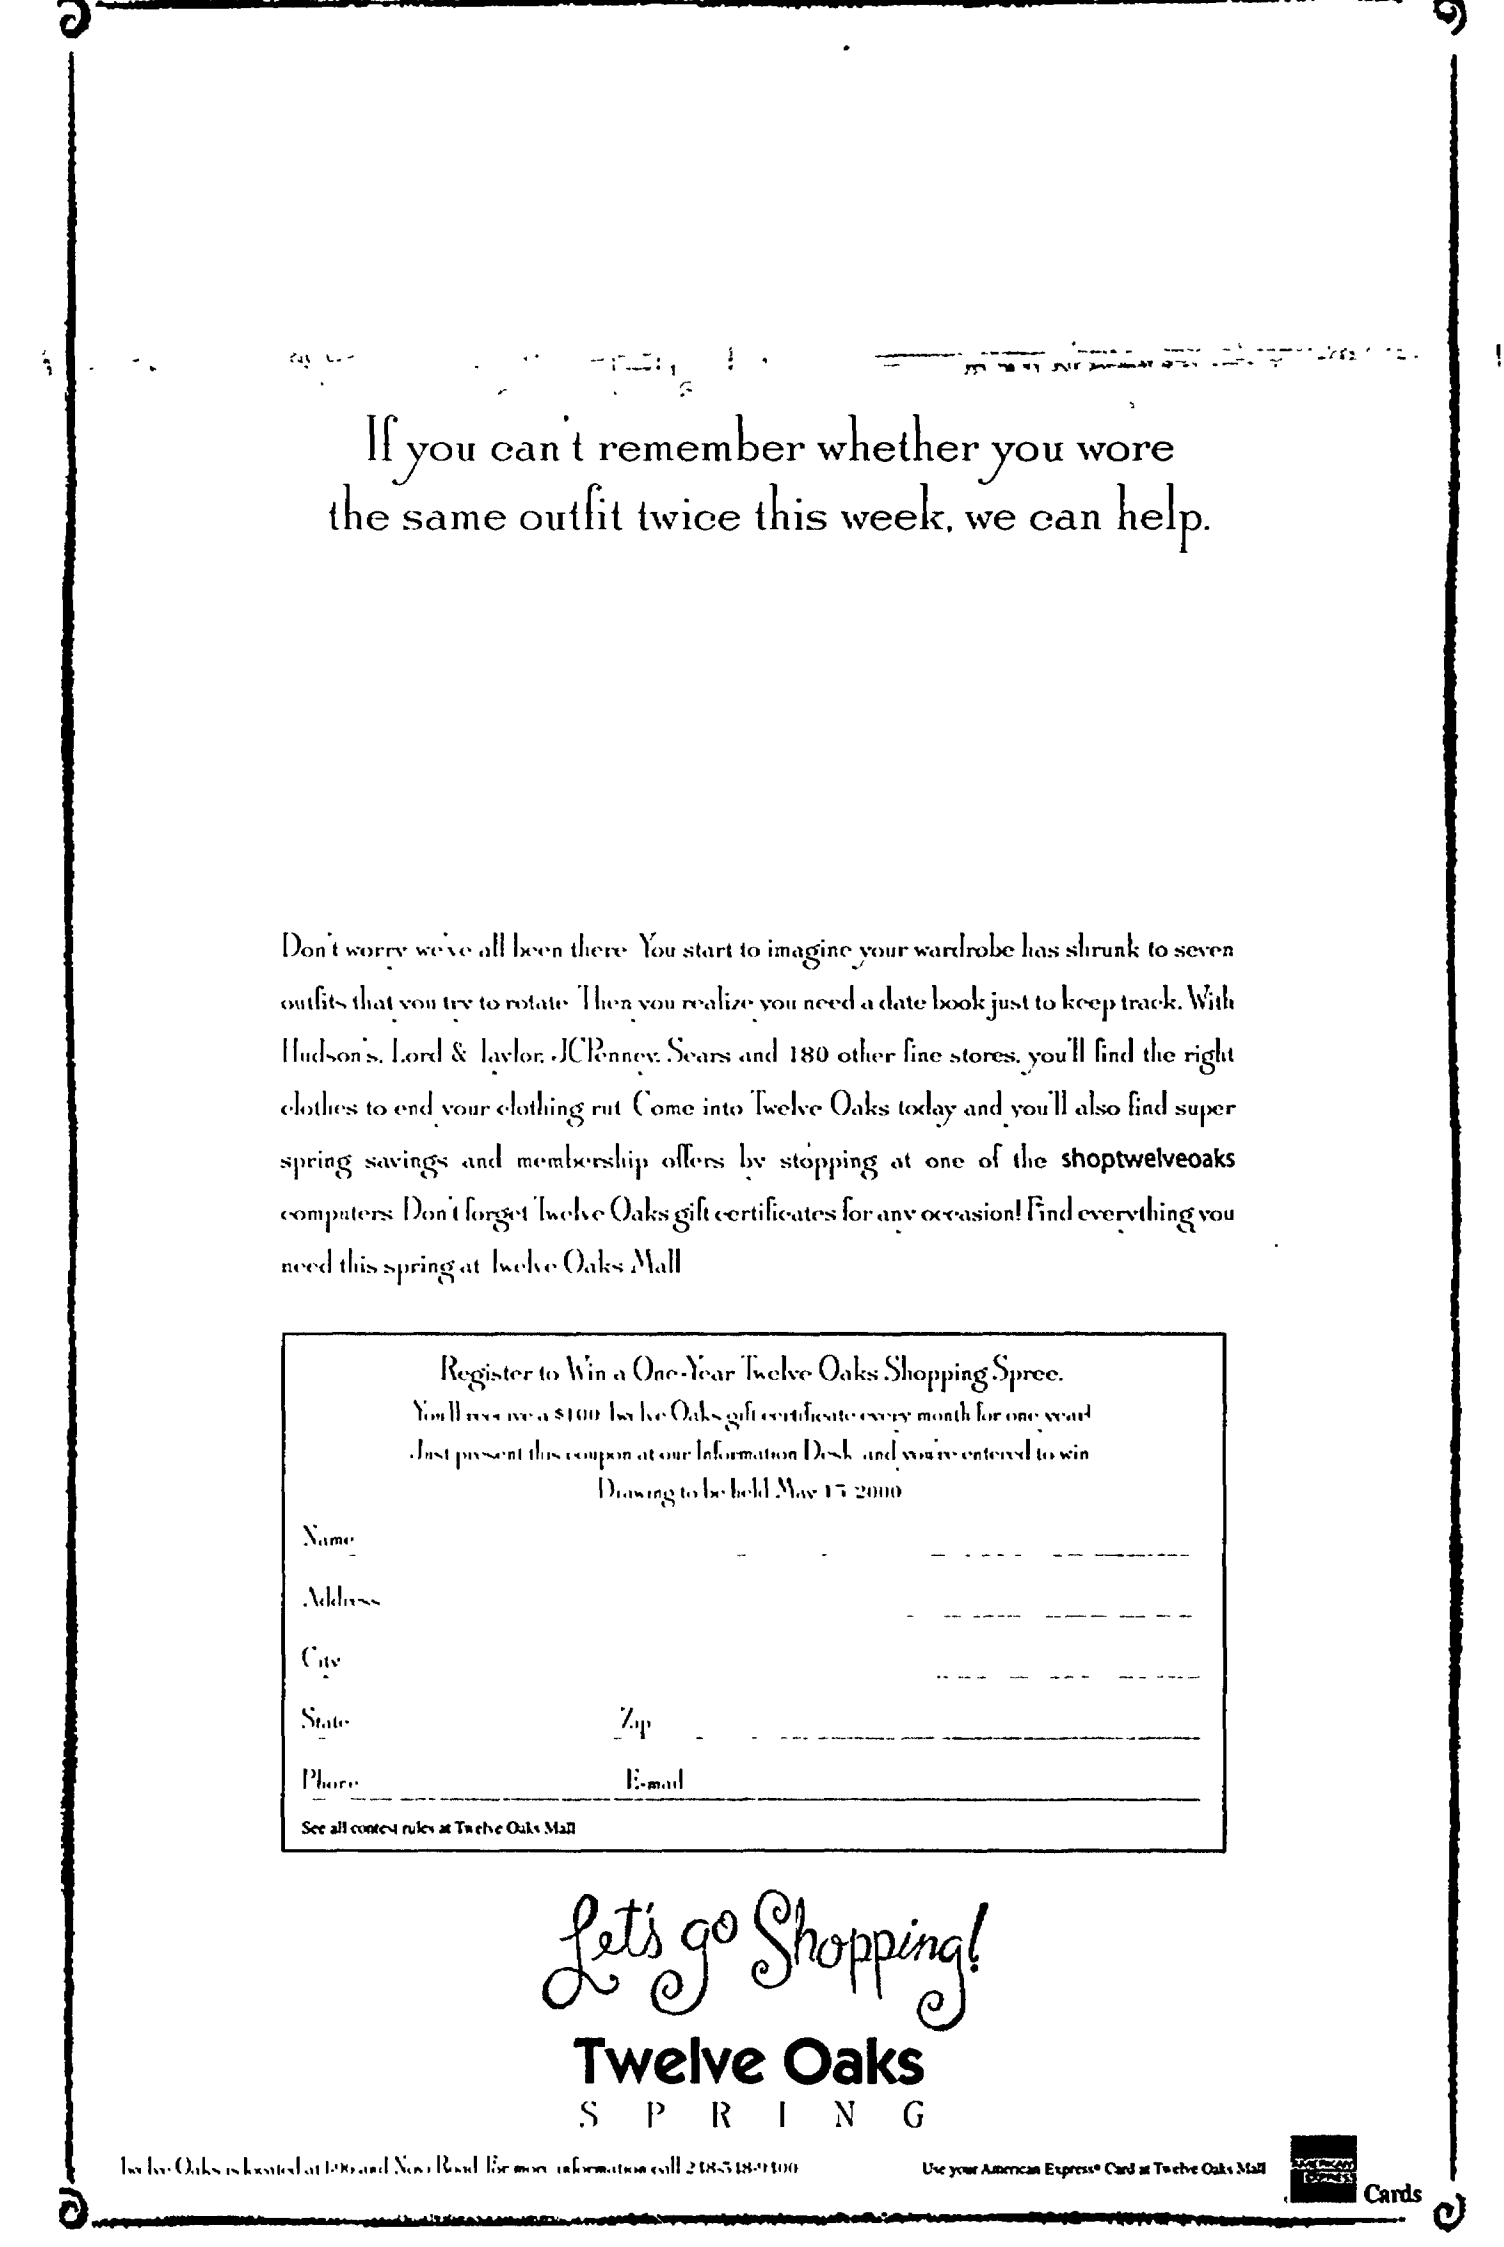 If you can't remember whether you wore
the same outfit twice this week, we can help.
Don't worry we've all been there You start to imagine your wardrobe has shrunk to seven
outfits that you try to rotate Then you realize you need a date book just to keep track. With
Hudson's, Lord & Taylor, JCPenney, Sears and 180 other fine stores, you'll find the right
clothes to end your clothing rut Come into Twelve Oaks today and you'll also find super
spring savings and membership offers by stopping at one of the shoptwelveoaks
computers Don't forget Twelve Oaks gift certificates for any occasion! Find everything you
need this spring at Twelve Oaks Mall
Register to Win a One-Year Twelve Oaks Shopping Spree.
You'll receive a $100 Twelve Oaks gift certificate every month for one year!
Just present this coupon at our Information Desk and you're entered to win
Drawing to be held May 2000
Name
Address
City
State Zip
Phone E-mail
See all contest rules at Twelve Oaks Mall
Let's go Shopping!
Twelve Oaks
SPRING
Twelve Oaks is located at I-96 and Novi Road For more information call
Use your American Express® Card at Twelve Oaks Mall
AMERICAN
EXPRESS
Cards